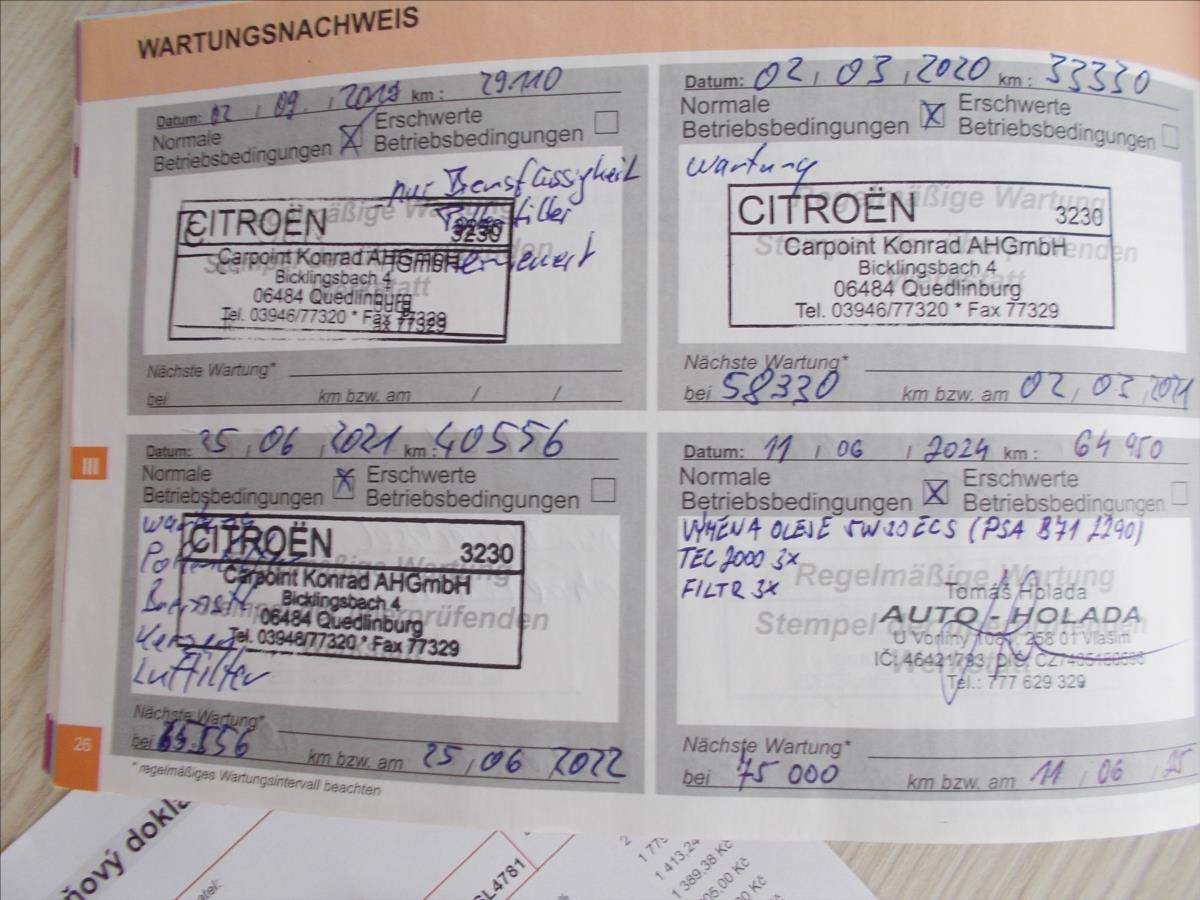 WARTUNGSNACHWEIS
Datum: 02 / 09. / 2019 km : 29110
Normale
Betriebsbedingungen X Erschwerte
Betriebsbedingungen
nur Dienstfässigkeit
filter
erneuert
CITROËN 3230
Carpoint Konrad AHGmbH
Bicklingsbach 4
06484 Quedlinburg
Tel. 03946/77320 * Fax 77329
Nächste Wartung*
bei km bzw. am / /
Datum: 02 / 03 / 2020 km : 33330
Normale
Betriebsbedingungen X Erschwerte
Betriebsbedingungen
Wartung
Regelmäßige Wartung
CITROËN 3230
Carpoint Konrad AHGmbH
Bicklingsbach 4
06484 Quedlinburg
Tel. 03946/77320 * Fax 77329
Nächste Wartung*
bei 58330 km bzw. am 02 / 03 / 2021
III
Datum: 25 / 06 / 2021 km : 40556
Normale
Betriebsbedingungen X Erschwerte
Betriebsbedingungen
Wartung
CITROËN 3230
Carpoint Konrad AHGmbH
Bicklingsbach 4
06484 Quedlinburg
Tel. 03946/77320 * Fax 77329
Luftfilter
Nächste Wartung*
bei 65556 km bzw. am 25 / 06 / 2022
* regelmäßiges Wartungsintervall beachten
26
Datum: 11 / 06 / 2024 km : 64 950
Normale
Betriebsbedingungen X Erschwerte
Betriebsbedingungen
VÝMĚNA OLEJE 5W30 ECS (PSA B71 2290)
TEC 2000 3x
FILTR 3x
Regelmäßige Wartung
Tomáš Holada
AUTO - HOLADA
258 01 Vlašim
IČ: 46421783, DIČ:
Tel.: 777 629 329
Nächste Wartung*
bei 75 000 km bzw. am 11 / 06 / 25
ňový dokla
SL4781
1 413,24
1 389,38 Kč
05,00 Kč
00 Kč
Kč